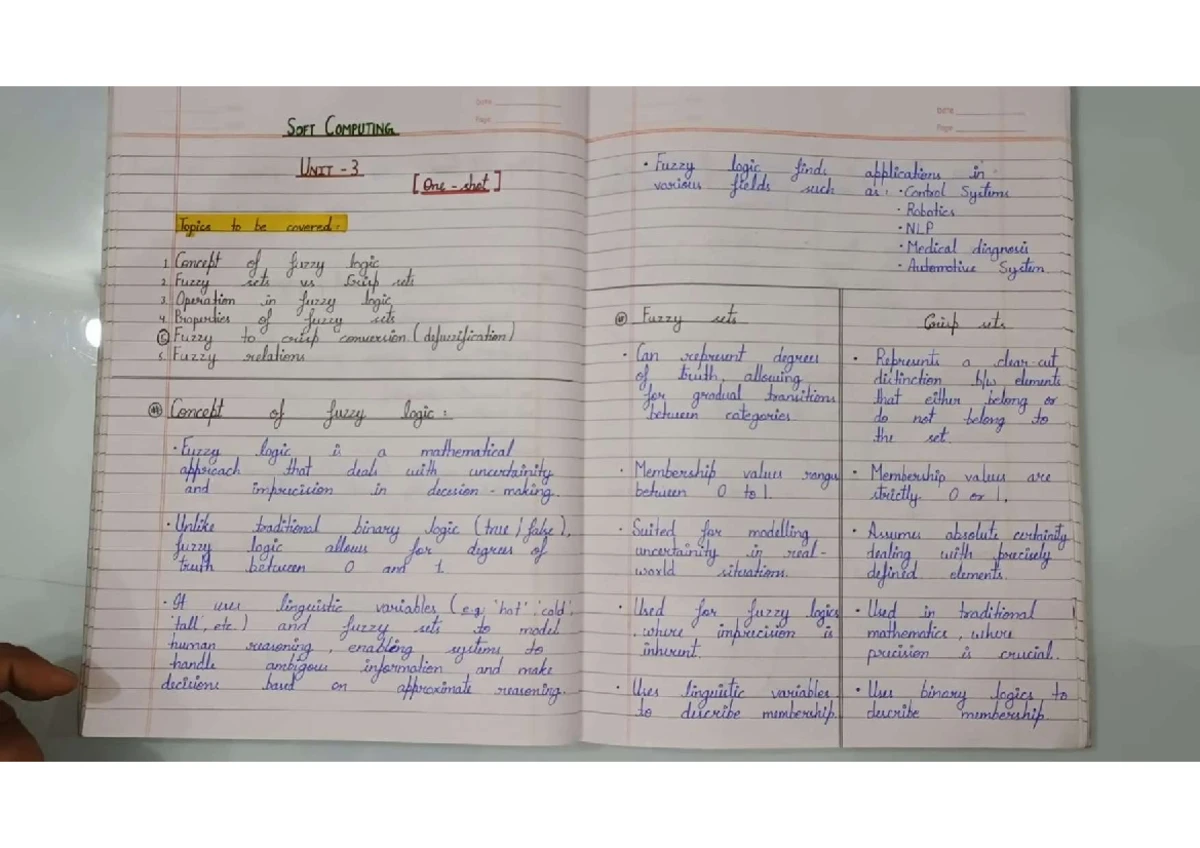 Date
Page
SOFT COMPUTING
UNIT - 3
[One - shot]
Topics to be covered:
1. Concept of fuzzy logic
2. Fuzzy sets vs Crisp sets
3. Operation in fuzzy logic
4. Properties of fuzzy sets
5. Fuzzy to crisp conversion (defuzzification)
6. Fuzzy relations
Concept of fuzzy logic :
• Fuzzy logic is a mathematical
approach that deals with uncertainity
and imprecision in decesion - making.
• Unlike traditional binary logic (true / false),
fuzzy logic allows for degrees of
truth between 0 and 1.
• It uses linguistic variables (e.g. 'hot', 'cold',
'tall', etc.) and fuzzy sets to model
human reasoning, enabling systems to
handle ambigous information and make
decisions based on approximate reasoning.
Date
Page
• Fuzzy logic finds applications in
various fields such as: • Control Systems
• Robotics
• NLP
• Medical diagnosis
• Automotive System
Fuzzy sets
• Can represent degrees
of truth, allowing
for gradual transitions
between categories.
• Membership values range
between 0 to 1.
• Suited for modelling
uncertainity in real-
world situations.
• Used for fuzzy logics
, where imprecision is
inherent.
• Uses linguistic variables
to describe membership.
Crisp sets
• Represents a clear-cut
distinction b/w elements
that either belong or
do not belong to
the set.
• Membership values are
strictly 0 or 1.
• Assumes absolute certainity
dealing with precisely
defined elements.
• Used in traditional
mathematics, where
precision is crucial.
• Uses binary logics to
describe membership.